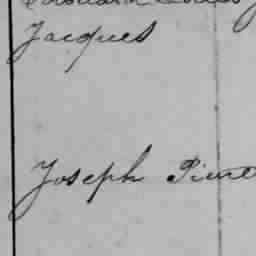 Jacques
Joseph Pierre